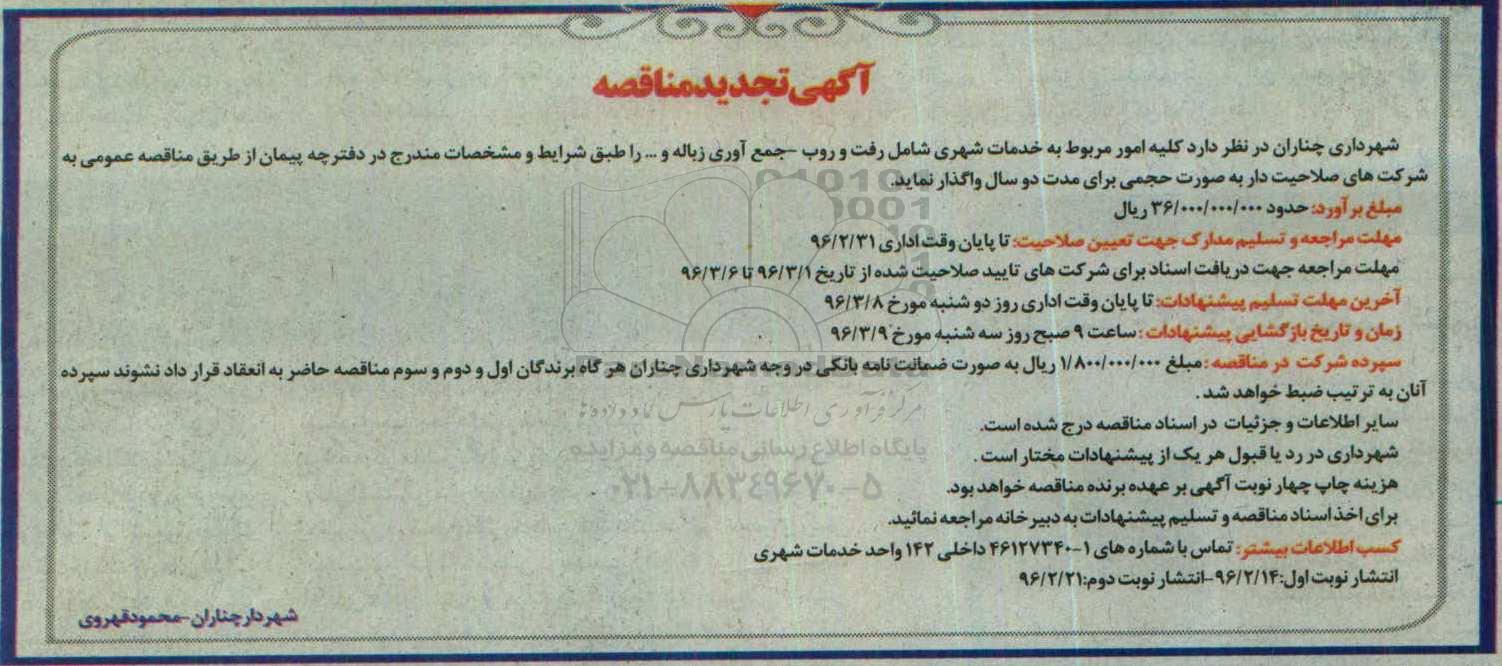 آگهی تجدید مناقصه
شهرداری چناران در نظر دارد کلیه امور مربوط به خدمات شهری شامل رفت و روب -جمع آوری زباله و ... را طبق شرایط و مشخصات مندرج در دفترچه پیمان از طریق مناقصه عمومی به
شرکت های صلاحیت دار به صورت حجمی برای مدت دو سال واگذار نماید.
مبلغ برآورد: حدود ۳۶/۰۰۰/۰۰۰/۰۰۰ ریال
مهلت مراجعه و تسلیم مدارک جهت تعیین صلاحیت: تا پایان وقت اداری ۹۶/۲/۳۱
مهلت مراجعه جهت دریافت اسناد برای شرکت های تایید صلاحیت شده از تاریخ ۹۶/۳/۱ تا ۹۶/۳/۶
آخرین مهلت تسلیم پیشنهادات: تا پایان وقت اداری روز دو شنبه مورخ ۹۶/۳/۸
زمان و تاریخ بازگشایی پیشنهادات : ساعت ۹ صبح روز سه شنبه مورخ ۹۶/۳/۹
سپرده شرکت در مناقصه : مبلغ ۱/۸۰۰/۰۰۰/۰۰۰ ریال به صورت ضمانت نامه بانکی در وجه شهرداری چناران هر گاه برندگان اول و دوم و سوم مناقصه حاضر به انعقاد قرار داد نشوند سپرده
آنان به ترتیب ضبط خواهد شد .
مرکز فرآوری اطلاعات پارس نماد داده ها
سایر اطلاعات و جزئیات در اسناد مناقصه درج شده است.
پایگاه اطلاع رسانی مناقصه و مزایده
شهرداری در رد یا قبول هر یک از پیشنهادات مختار است .
۰۲۱-۸۸۳۴۹۶۷۰-۵
هزینه چاپ چهار نوبت آگهی بر عهده برنده مناقصه خواهد بود.
برای اخذ اسناد مناقصه و تسلیم پیشنهادات به دبیرخانه مراجعه نمائید.
کسب اطلاعات بیشتر: تماس با شماره های ۱-۴۶۱۲۷۳۴۰ داخلی ۱۴۲ واحد خدمات شهری
انتشار نوبت اول:۹۶/۲/۱۴-انتشار نوبت دوم:۹۶/۲/۲۱
شهردار چناران-محمود قهروی